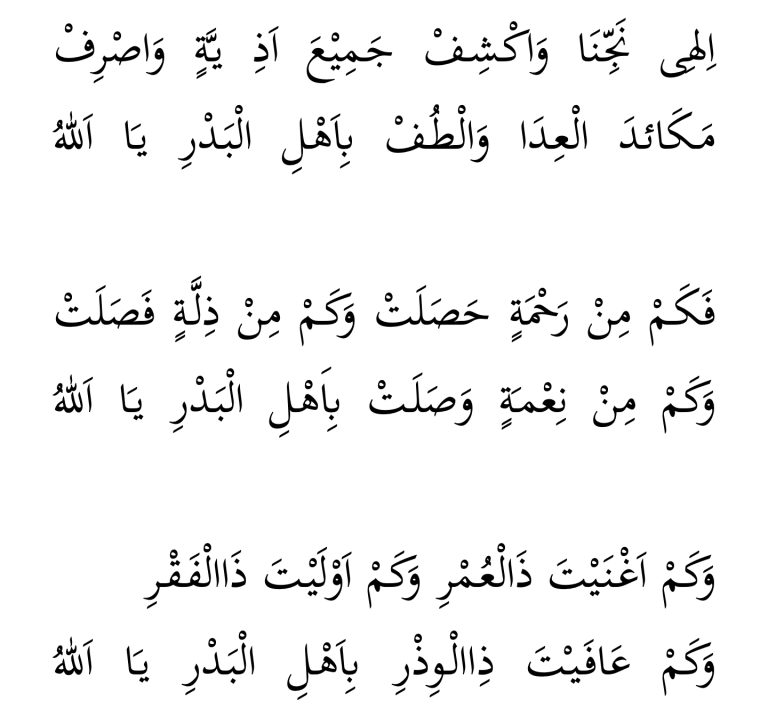 اِلهِى نَجِّنَا وَاكْشِفْ جَمِيْعَ اَذِ يَّةٍ وَاصْرِفْ
مَكَائدَ الْعِدَا وَالْطُفْ بِاَهْلِ الْبَدْرِ يَا اَللهُ
فَكَمْ مِنْ رَحْمَةٍ حَصَلَتْ وَكَمْ مِنْ ذِلَّةٍ فَصَلَتْ
وَكَمْ مِنْ نِعْمَةٍ وَصَلَتْ بِاَهْلِ الْبَدْرِ يَا اَللهُ
وَكَمْ اَغْنَيْتَ ذَالْعُمْرِ وَكَمْ اَوْلَيْتَ ذَاالْفَقْرِ
وَكَمْ عَافَيْتَ ذِاالْوِذْرِ بِاَهْلِ الْبَدْرِ يَا اَللهُ